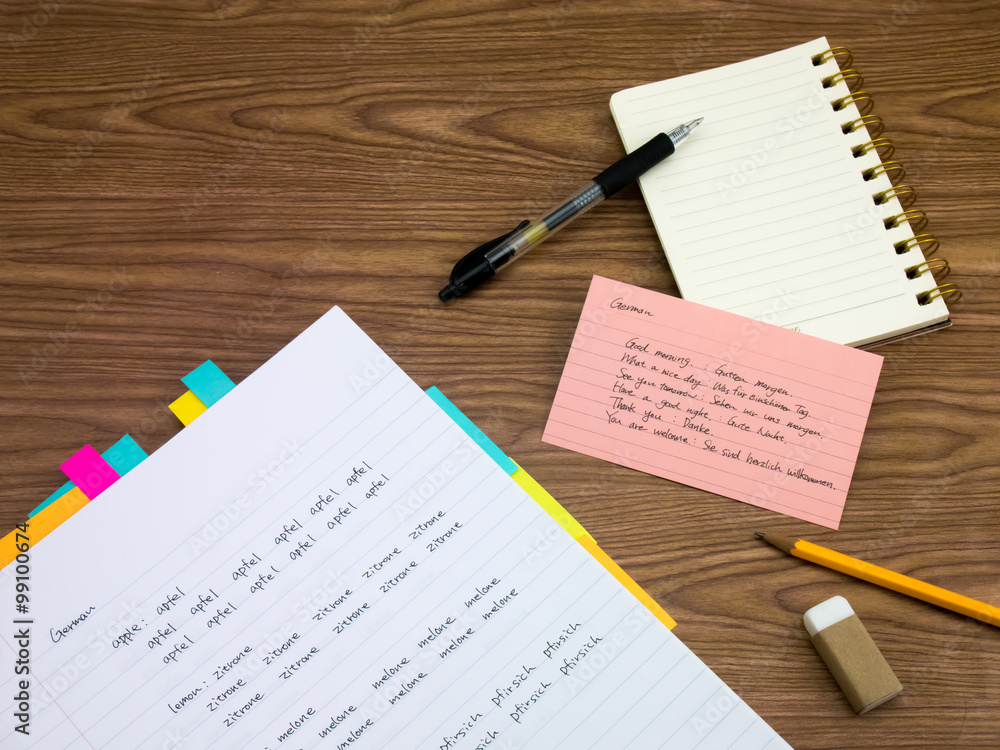 German
Good morning. : Gutten morgen.
What a nice day : Was für einschöner Tag.
See you tomorrow : Sehen wir uns morgen.
Have a good night. : Gute Nacht.
Thank you : Danke.
You are welcome : Sie sind herzlich willkommen.
German
apple : apfel apfel apfel apfel apfel
apfel apfel apfel apfel apfel
apfel apfel
lemon : zitrone zitrone zitrone zitrone zitrone
zitrone zitrone zitrone zitrone zitrone
zitrone zitrone
melone melone melone melone
melone melone melone melone
melone
pfirsich pfirsich pfirsich
pfirsich pfirsich
Adobe Stock
99100674